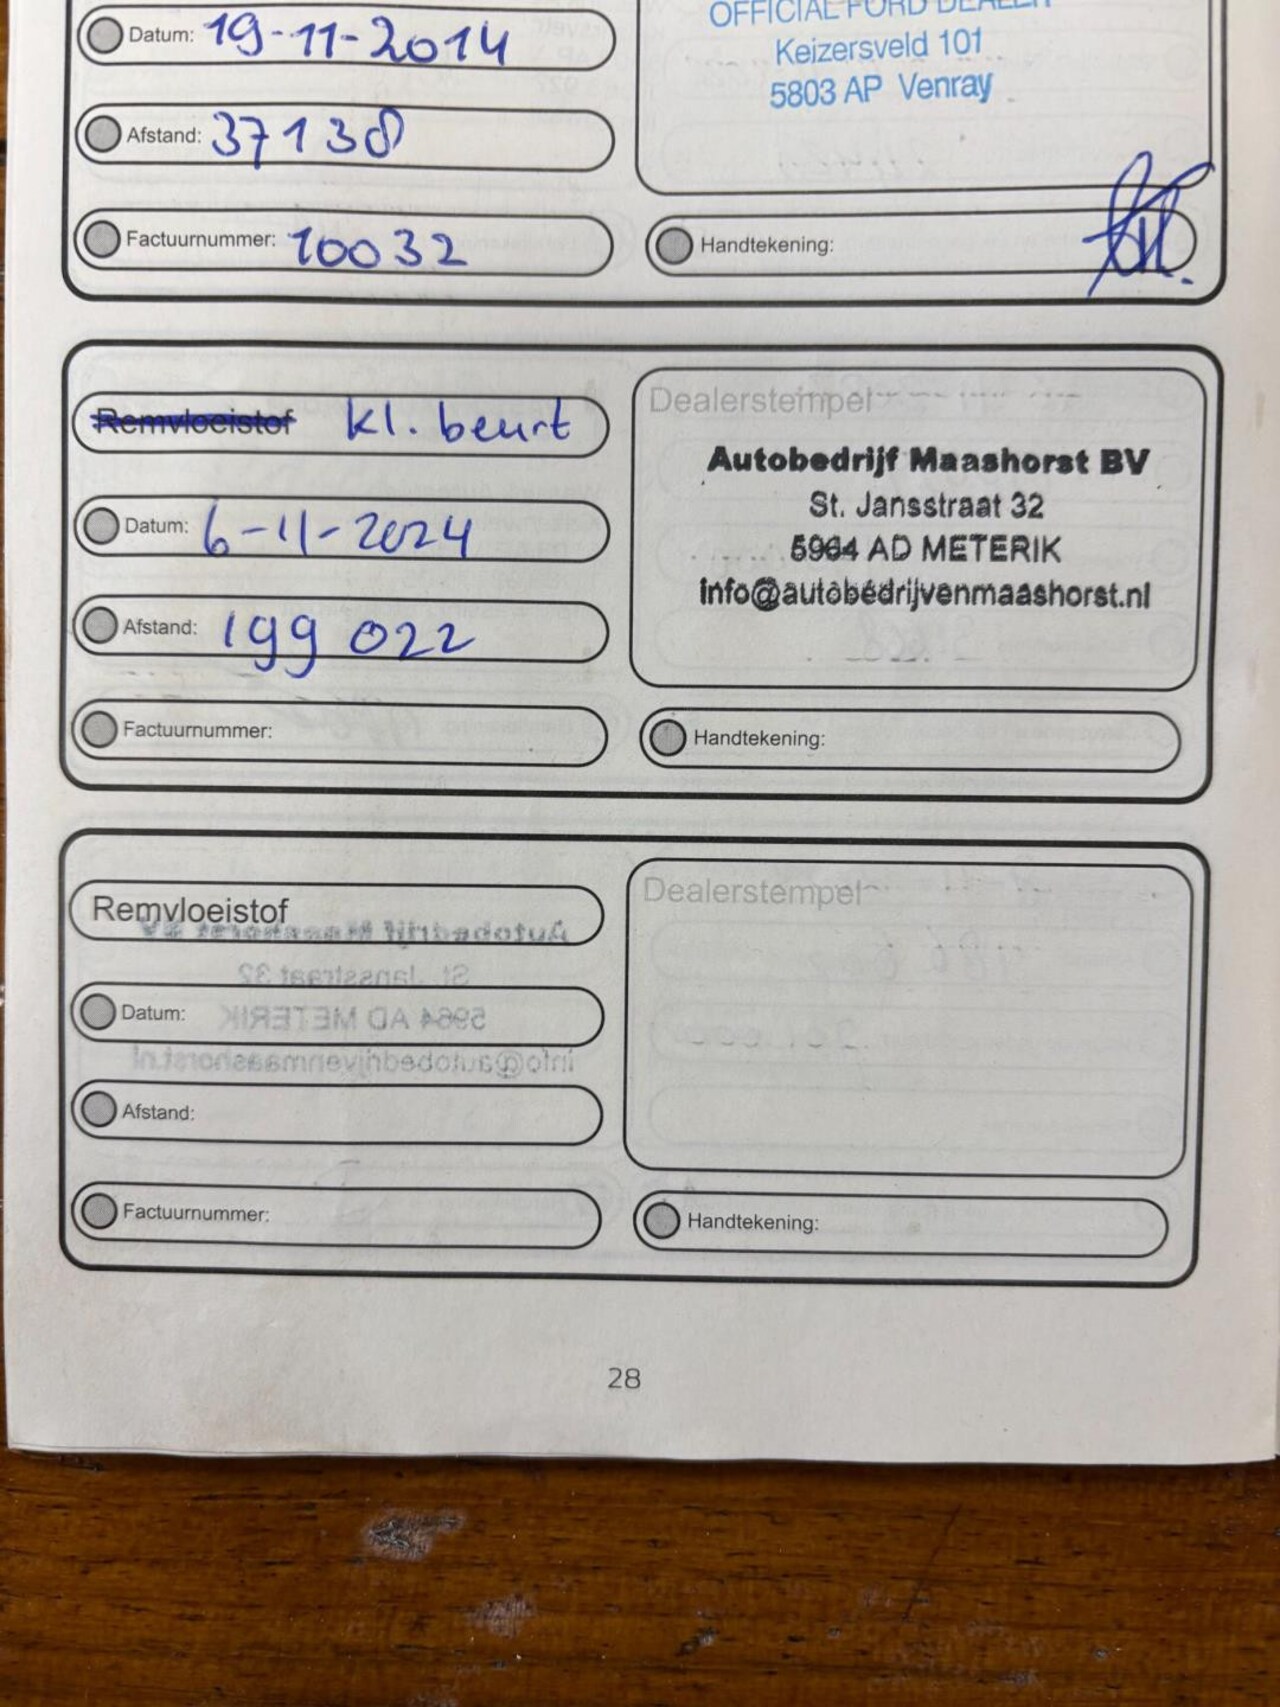 OFFICIAL FORD DEALER
Datum: 19-11-2014
Keizersveld 101
5803 AP Venray
Afstand: 37138
Factuurnummer: 10032
Handtekening:
Remvloeistof kl. beurt
Dealerstempel
Autobedrijf Maashorst BV
St. Jansstraat 32
5964 AD METERIK
info@autobedrijvenmaashorst.nl
Datum: 6-11-2024
Afstand: 199 022
Factuurnummer:
Handtekening:
Remvloeistof
Dealerstempel
Datum:
Afstand:
Factuurnummer:
Handtekening:
28